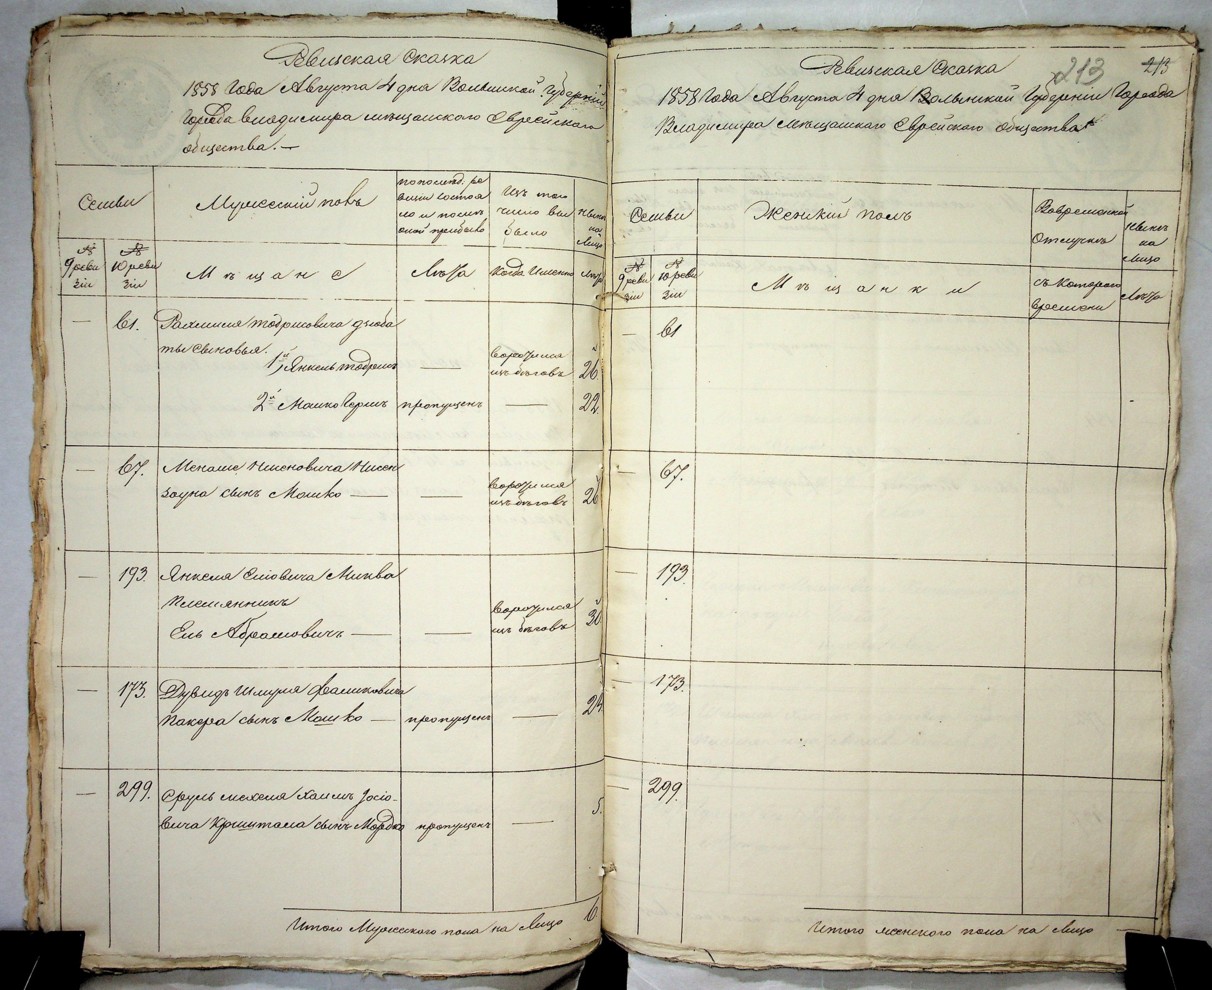 Ревизская Сказка
1858 Года Августа 4 дня Волынской Губернии
Города Владимира мещанского Еврейского
общества. —
Семьи
Мужеский полъ
по последн. ре
визии состоя
ло и после
оной прибыло
Изъ того
число вы
было
Ныне
на
Лицо
№ 9 реви зіи
№ 10 реви зіи
Мещане
Лѣта
Когда Именно
Лѣта
— 61.
Рахмиля Тодрисовича
ты сыновья.
1й Янкель Тодрисъ — воротился изъ беговъ 26.
2й Мошко Герш пропущенъ — 22.
— 67.
Менаше Нисеновича Нисен
зауна сынъ Мошко — — воротился изъ беговъ 26
— 193. Янкеля Еліовича
Племянникъ
Ель Абрамовичъ — — воротился изъ беговъ 30
— 173. Дувидъ Шмуля
Пакера сынъ Мошко — пропущенъ — 24
— 299. Сруль Мехеля Хаимъ Іосіо-
вича Криштала сынъ Мордко пропущенъ — 5.
Итого Мужеского пола на Лицо 6.
Ревизская Сказка
213
213
1858 Года Августа 4 дня Волынской Губерніи Города
Владимира Мещанского Еврейского общества
Семьи
Женскій полъ
Во временной
Отлучке
Ныне
на
Лицо
№ 9 реви зіи
№ 10 реви зіи
Мещанки
съ Которого
времени
Лѣта
— 61
— 67.
— 193.
— 173.
— 299.
Итого женского пола на Лицо —